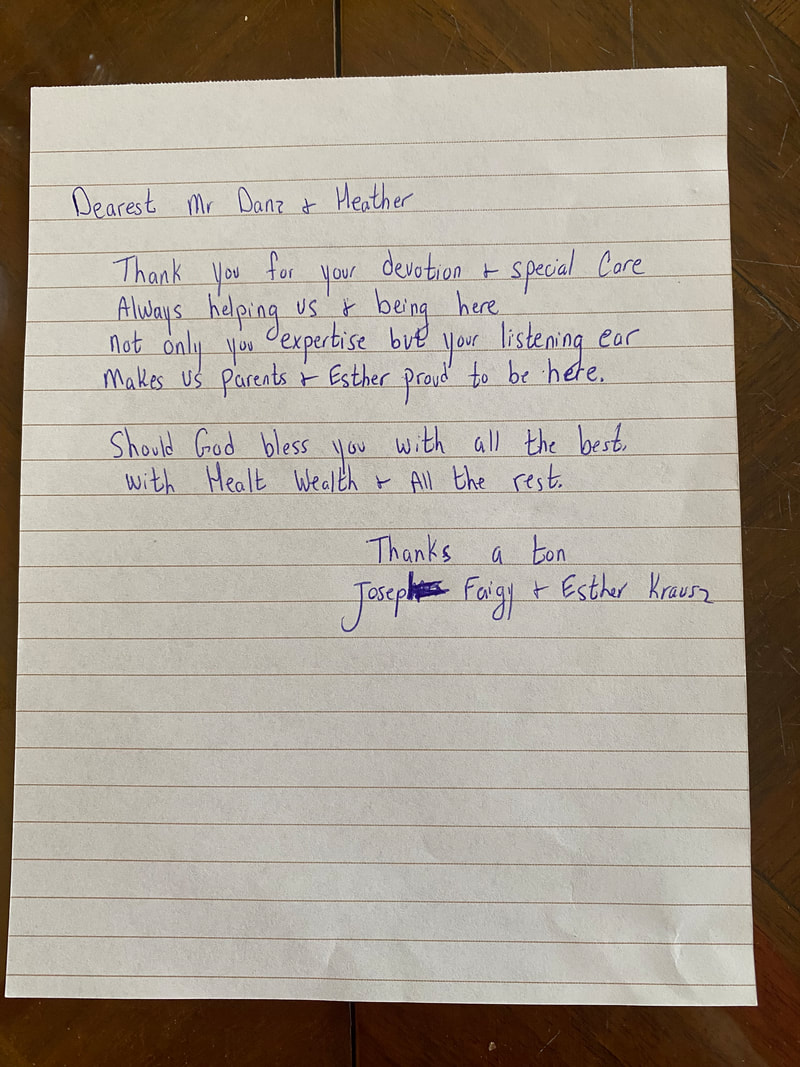 Dearest Mr Danz & Heather
Thank you for your devotion & special Care
Always helping us & being here
not only you expertise but your listening ear
Makes us parents & Esther proud to be here.
Should God bless you with all the best.
with Healt Wealth & All the rest.
Thanks a ton
Joseph Faigy & Esther Krausz